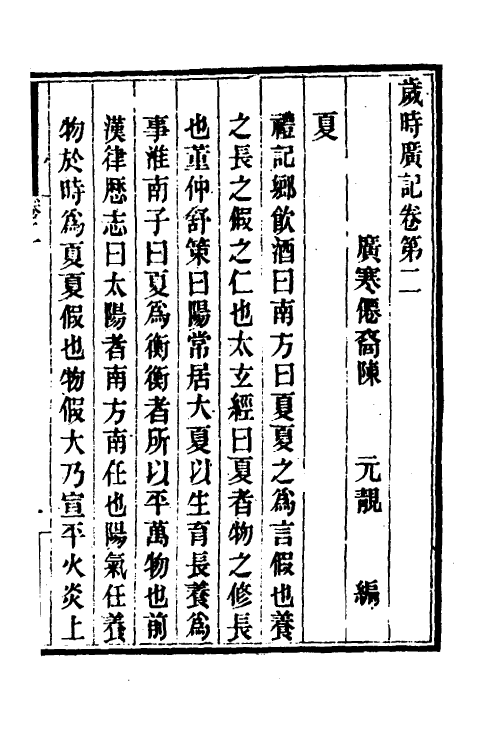 歲時廣記卷第二
廣寒僊裔陳　元靚　編
夏
禮記鄉飲酒曰南方曰夏夏之爲言假也養
之長之假之仁也太玄經曰夏者物之修長
也董仲舒策曰陽常居大夏以生育長養爲
事淮南子曰夏爲衡衡者所以平萬物也前
漢律歷志曰太陽者南方南任也陽氣任養
物於時爲夏夏假也物假大乃宣平火炎上